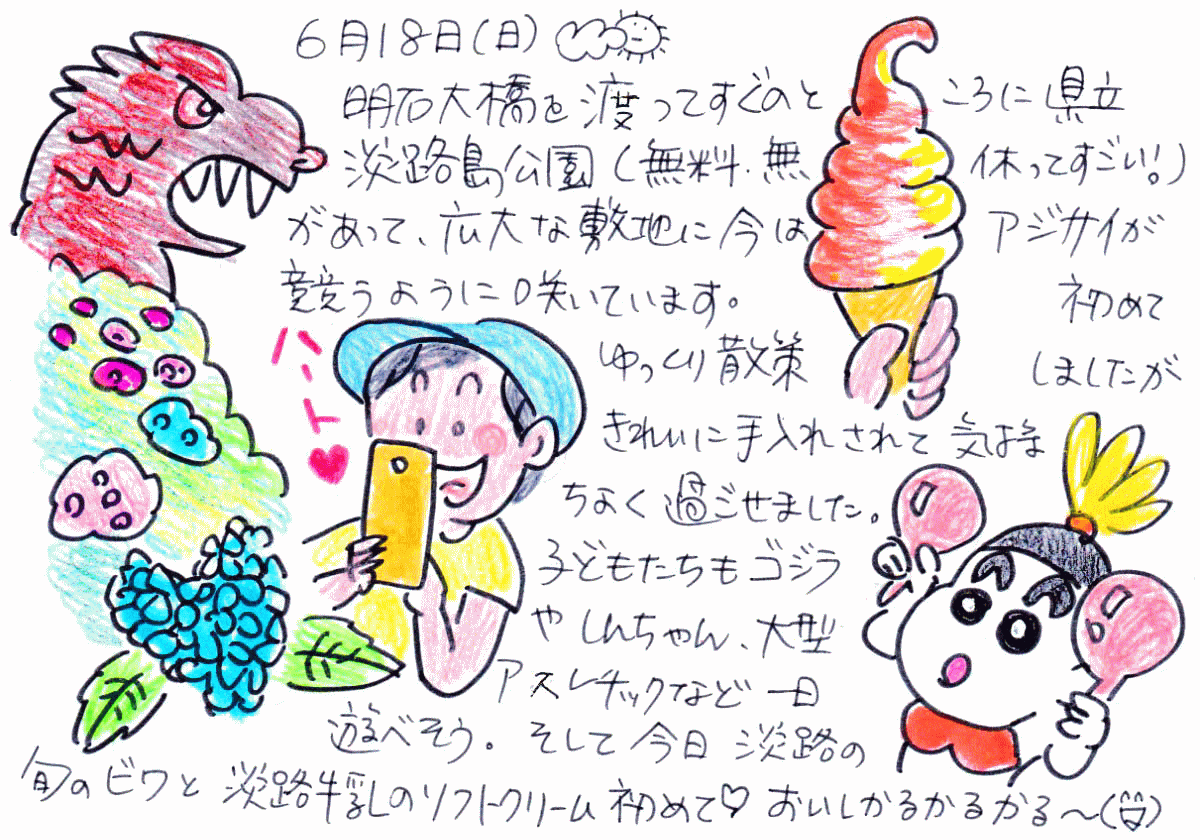 6月18日(日)
明石大橋を渡ってすぐのところに県立
淡路島公園(無料・無休ってすごい!)
があって、広大な敷地に今はアジサイが
競うように咲いています。初めて
ゆっくり散策しましたが
きれいに手入れされて気持
ちよく過ごせました。
子どもたちもゴジラ
やしんちゃん、大型
アスレチックなど一日
遊べそう。そして今日淡路の
旬のビワと淡路牛乳のソフトクリーム初めて♡おいしかるかるかる〜
ハート♥